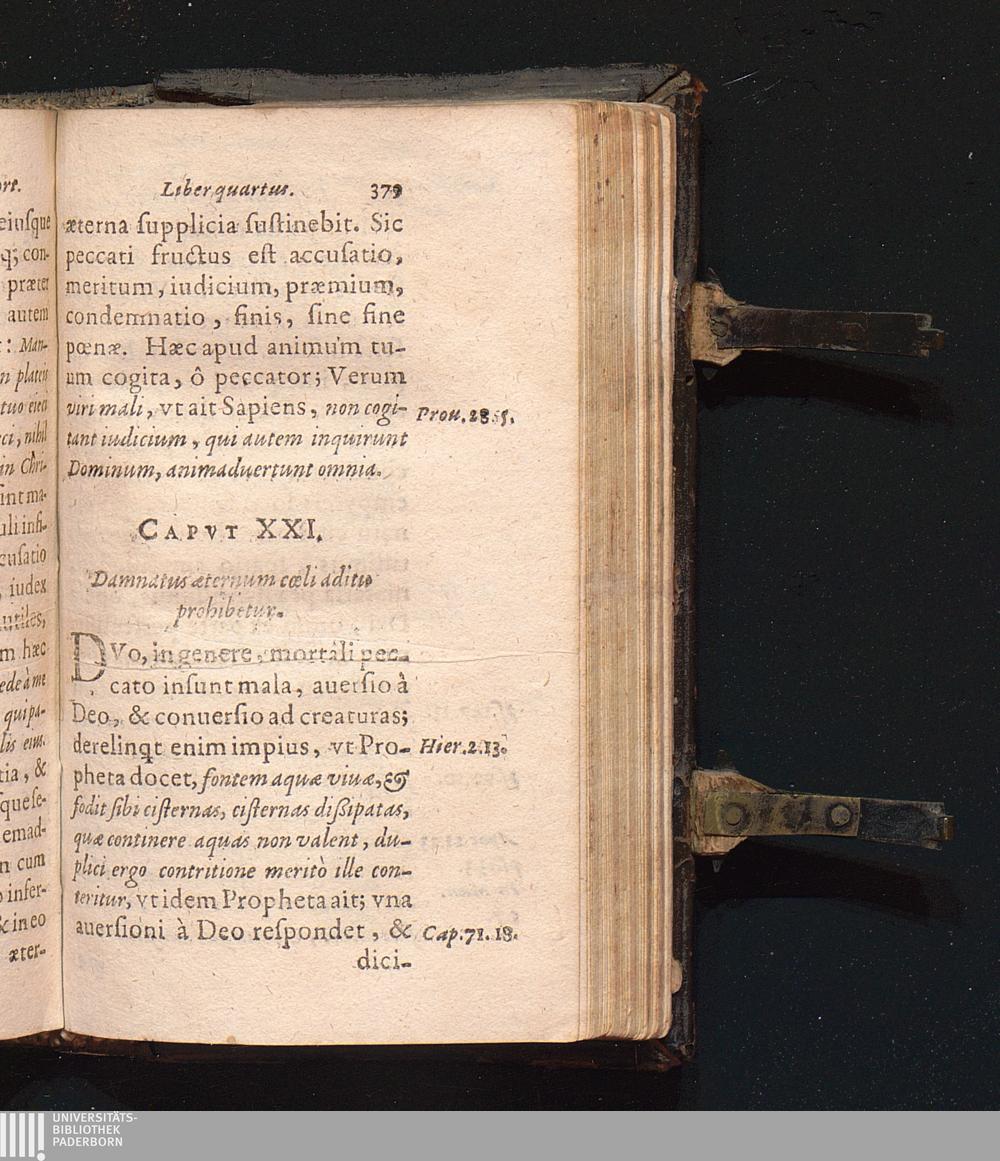 ort.
eiuſque
q; con-
præter
autem
: Man-
n plateis
tuo eieci
eci, nihil
in Chri-
ſint ma-
uli infi-
cuſatio
, iudex
nutiles,
m hæc
ede à me
qui pa-
lis eius.
tia, &
que ſe-
emad-
n cum
o infer-
& in eo
æter-
Liber quartus. 379
æterna ſupplicia ſuſtinebit. Sic
peccati fructus eſt accuſatio,
meritum, iudicium, præmium,
condemnatio, finis, ſine fine
pœnæ. Hæc apud animum tu-
um cogita, ô peccator; Verum
viri mali, vt ait Sapiens, non cogi-
tant iudicium, qui autem inquirunt
Dominum, animaduertunt omnia.
Prou. 28. 5.
CAPVT XXI.
Damnatus æternum cœli aditu
prohibetur.
DVo, in genere, mortali pec-
cato inſunt mala, auerſio à
Deo, & conuerſio ad creaturas;
derelinqt enim impius, vt Pro-
pheta docet, fontem aquæ viuæ, &
fodit ſibi ciſternas, ciſternas diſſipatas,
quæ continere aquas non valent, du-
plici ergo contritione meritò ille con-
teritur, vt idem Propheta ait; vna
auerſioni à Deo reſpondet, &
dici-
Hier. 2. 13.
Cap. 71. 18.
UNIVERSITÄTS-
BIBLIOTHEK
PADERBORN